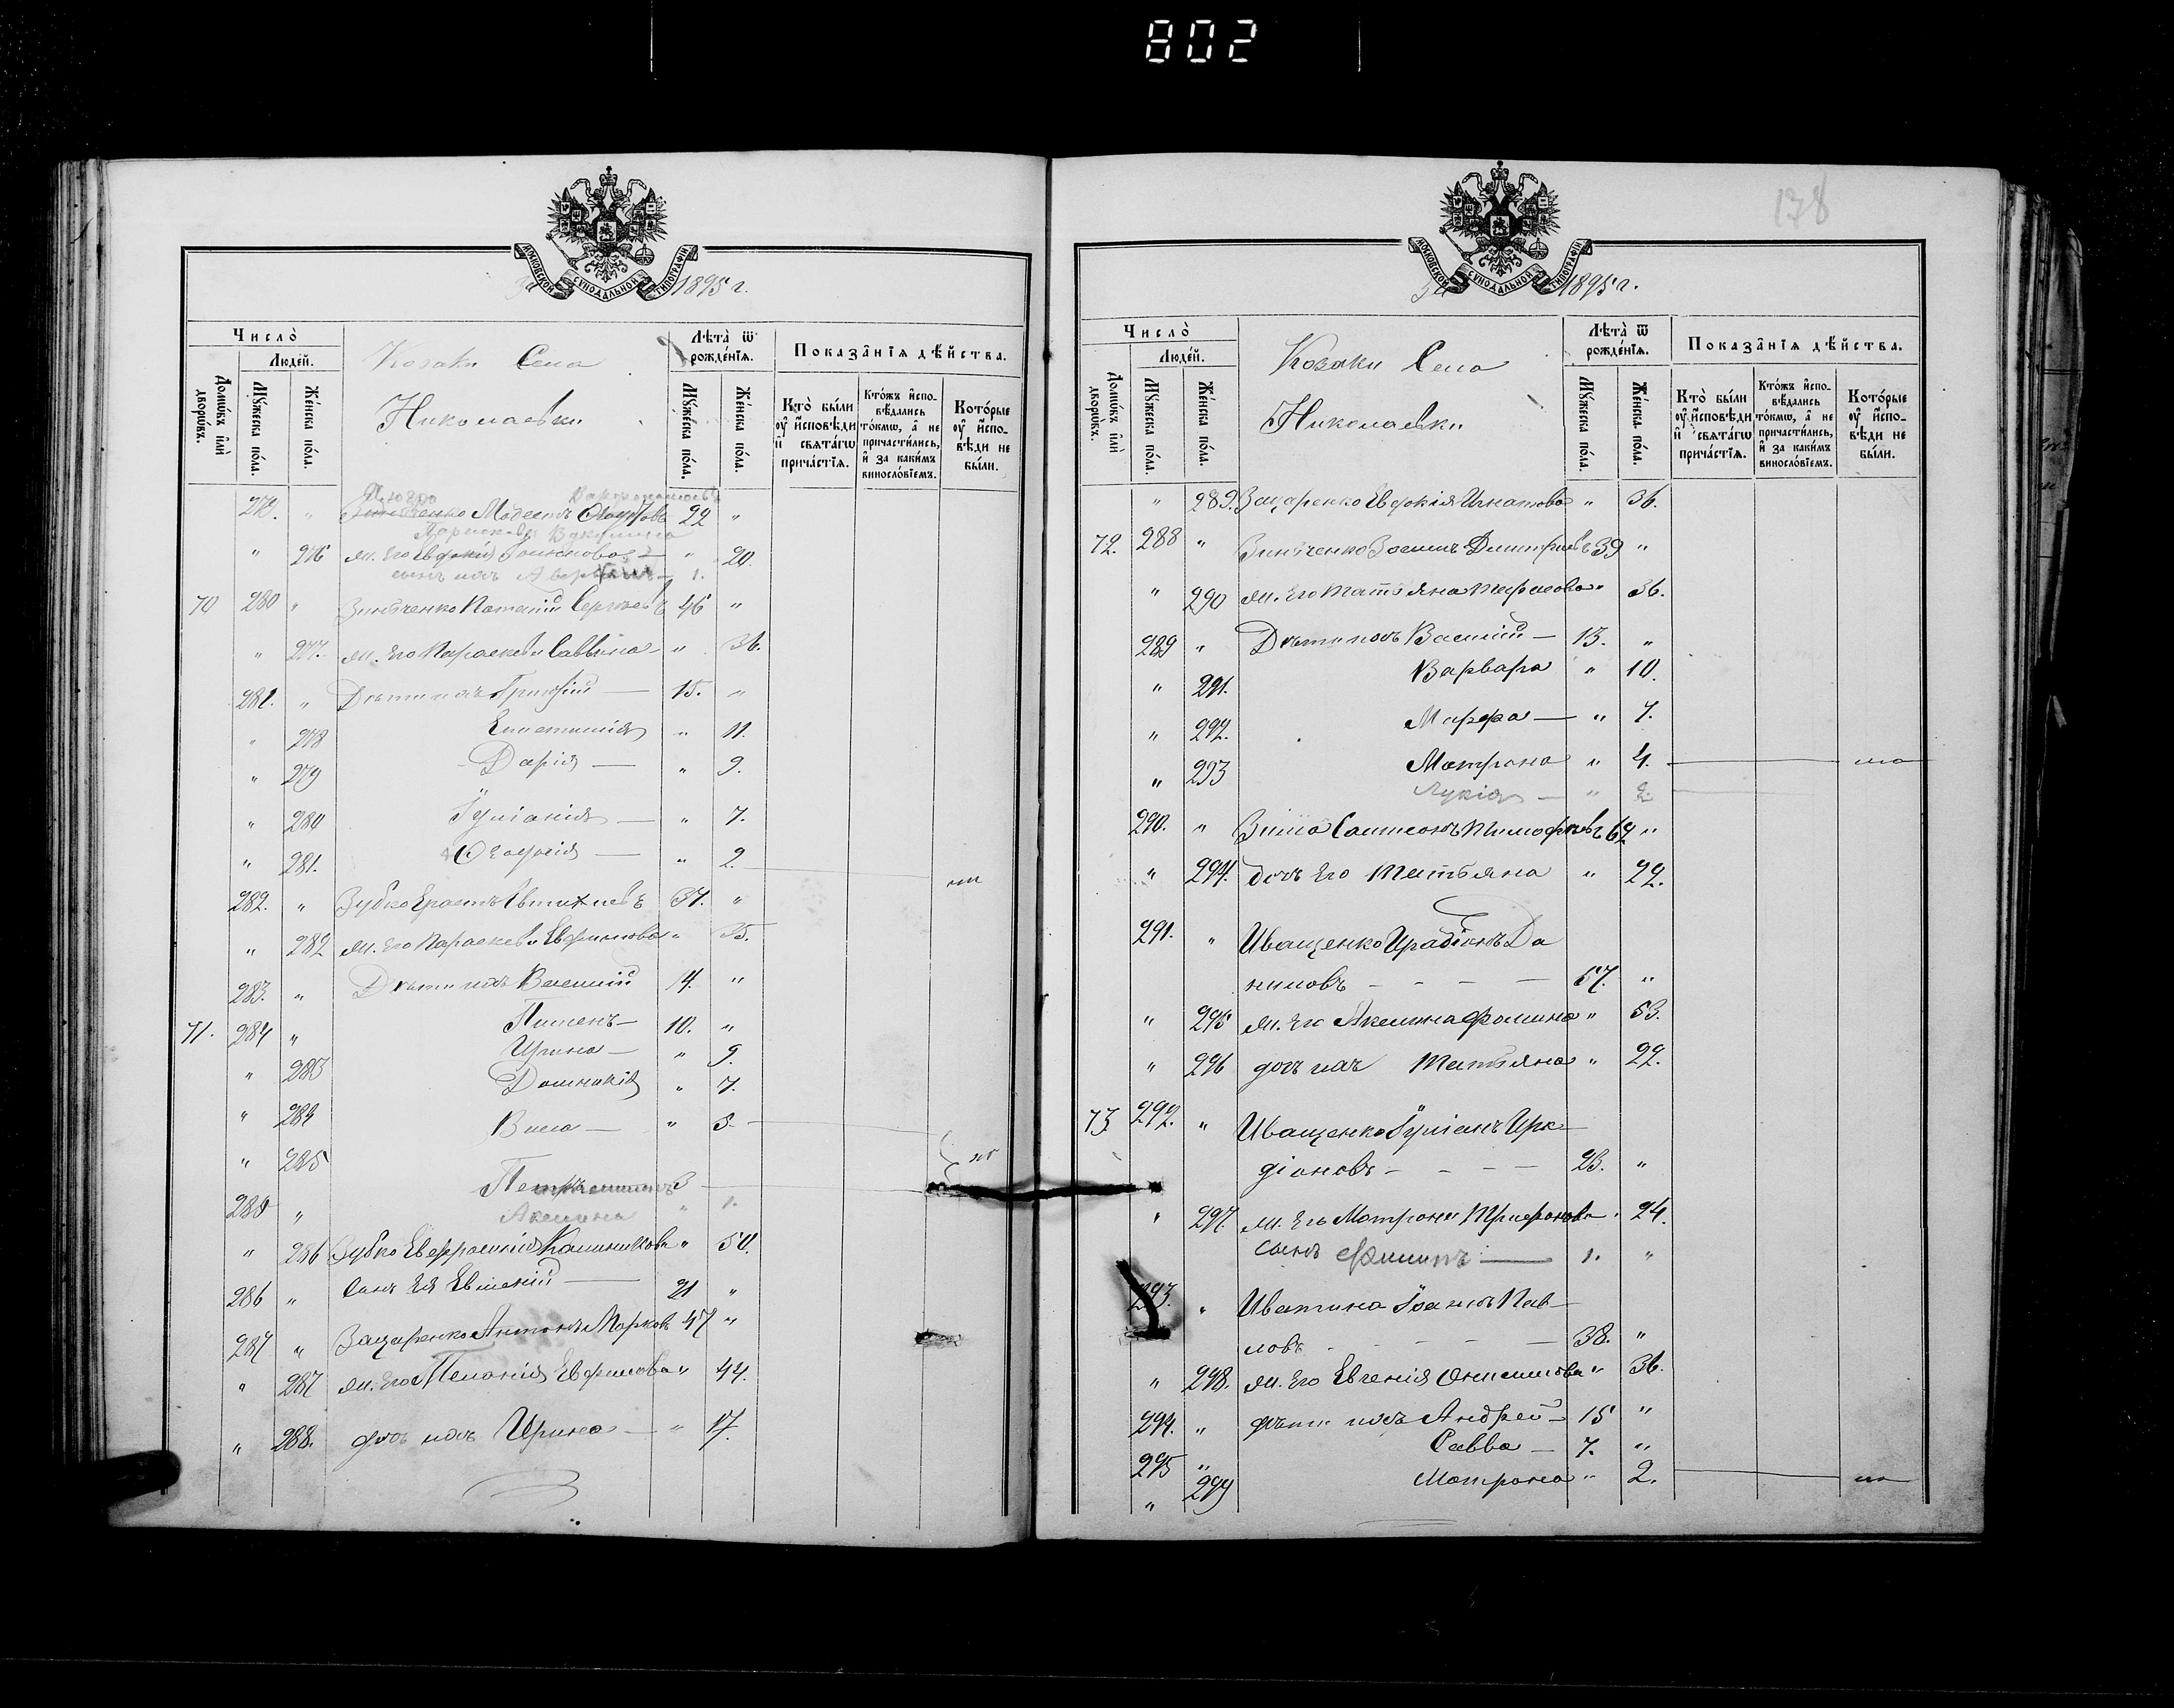 802
МОСКОВСКОЙ СѴНОДАЛЬНОЙ ТИПОГРАФІИ
За 1895 г.
Число̀
Людей.
Домѡ́въ и҆лѝ дворѡ́въ.
Мꙋжеска по́ла.
Же́нска по́ла.
Козаки Села
Николаевки
Лѣта̀ ѿ рожде́нїѧ.
Мꙋжеска по́ла.
Же́нска по́ла.
Показа̑нїѧ дѣ́йства.
Кто̀ бы́ли ᲂу҆ и҆сповѣди и҆ свѧта́гѡ прича́стїѧ.
Кто́жъ и҆спо-вѣ́дались то́кмѡ, а҆ не причасти́лись, и҆ за каки́мъ винослόвїемъ.
Кото́рые ᲂу҆ и҆спо-вѣди не бы́ли.
279. " Модестъ 22 "
" 276 ж. его " 20.
сынъ ихъ 1.
70 280 " Зинченко Потапій Сергѣевъ 46 "
" 277. ж. его Параскева Саввина " 36.
281. " Дѣти ихъ Григорій — 15. "
" 278 " 11.
" 279 Дарія — " 9.
" 280 Іуліанія — " 7.
" 281. — " 2.
282. " Зубко Ерастъ Евтихіевъ 37. "
" 282 ж. его Параскева Евфимова " 35.
283. " Дѣти ихъ Василій 14. "
71. 284 " Пименъ — 10. "
" 283 Ирина — " 9.
" 284 Домникія " 7.
" 285 Васса — " 5.
285 " Петръ 3
Акилина " 1.
" 286 Зубко Евфросинія Калиникова " 50.
286 " Сынъ ея Евменій — 21 "
287 " Зацаренко Антонъ Марковъ 47 "
" 287 ж. его Пелагія Евфимова " 44.
" 288. дочь ихъ Ирина — " 17.
138
МОСКОВСКОЙ СѴНОДАЛЬНОЙ ТИПОГРАФІИ
За 1895 г.
Число̀
Людей.
Домѡ́въ и҆лѝ дворѡ́въ.
Мꙋжеска по́ла.
Же́нска по́ла.
Козаки Села
Николаевки
Лѣта̀ ѿ рожде́нїѧ.
Мꙋжеска по́ла.
Же́нска по́ла.
Показа̑нїѧ дѣ́йства.
Кто̀ бы́ли ᲂу҆ и҆сповѣди и҆ свѧта́гѡ прича́стїѧ.
Кто́жъ и҆спо-вѣ́дались то́кмѡ, а҆ не причасти́лись, и҆ за каки́мъ винослόвїемъ.
Кото́рые ᲂу҆ и҆спо-вѣди не бы́ли.
" 289. Зацаренко Евдокія Игнатова " 36.
72. 288 " Зинченко Зосимъ Димитріевъ 39 "
" 290 ж. его Татьяна Тарасова " 36.
289 " Дѣти ихъ Василій — 13. "
" 291. Варвара " 10.
" 292. Марфа — " 7.
" 293 Матрона " 4.
Лукія — " 2.
290. " Зима Сампсонъ Тимофѣевъ 62 "
" 294. дочь его Татьяна " 22.
291. " Иващенко Иродіонъ Да
ниловъ — — — — 57. "
" 295 ж. его Акилина Фомина " 53.
" 296 дочь ихъ Татьяна " 22.
73. 292. " Иващенко Іуліанъ Иро-
діоновъ — — — — 23. "
" 297. ж. его Матрона Трифонова " 24.
сынъ Филипъ — 1. "
293. " Ивашина Іоаннъ Пав-
ловъ — — — 38. "
" 298. ж. его Евгенія Онисимова " 36.
294. " дѣти ихъ Андрей — 15 "
295 " Савва — 7. "
" 299 Матрона " 2.